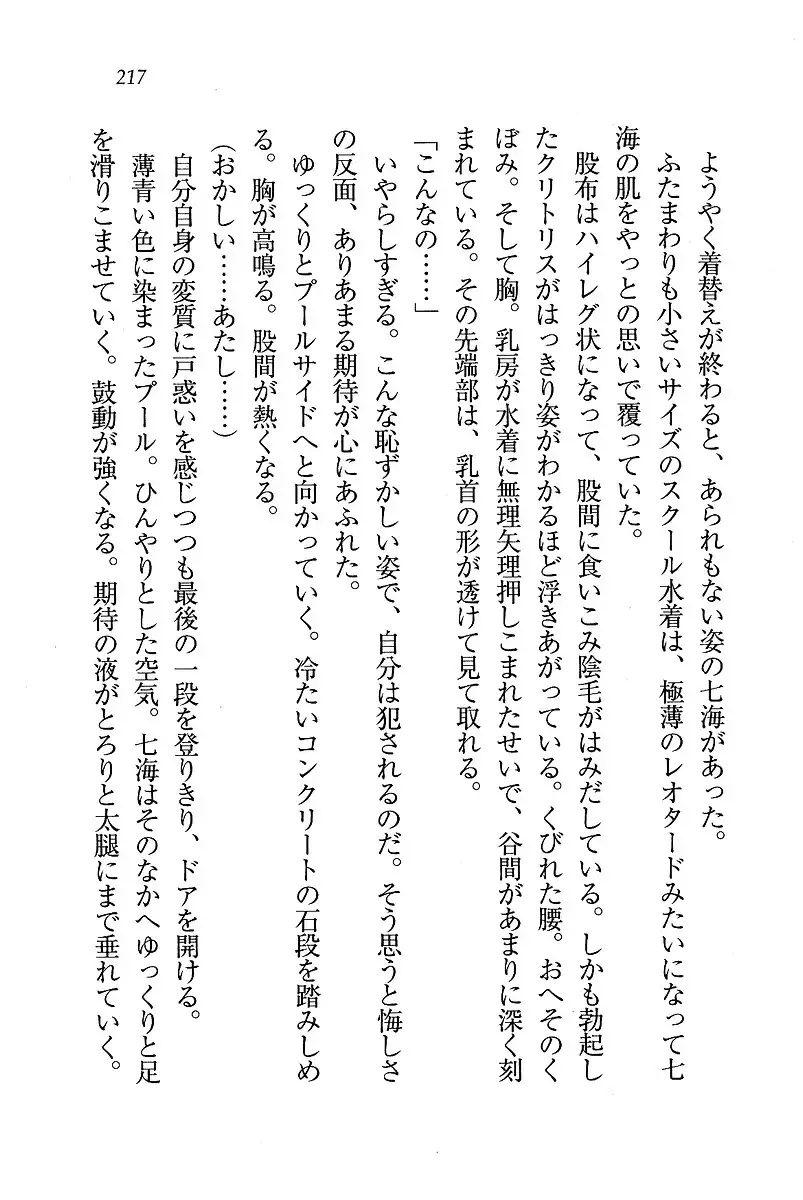 217
ようやく着替えが終わると、あられもない姿の七海があった。
ふたまわりも小さいサイズのスクール水着は、極薄のレオタードみたいになって七
海の肌をやっとの思いで覆っていた。
股布はハイレグ状になって、股間に食いこみ陰毛がはみだしている。しかも勃起し
たクリトリスがはっきり姿がわかるほど浮きあがっている。くびれた腰。おへそのく
ぼみ。そして胸。乳房が水着に無理矢理押しこまれたせいで、谷間があまりに深く刻
まれている。その先端部は、乳首の形が透けて見て取れる。
「こんなの……」
いやらしすぎる。こんな恥ずかしい姿で、自分は犯されるのだ。そう思うと悔しさ
の反面、ありあまる期待が心にあふれた。
ゆっくりとプールサイドへと向かっていく。冷たいコンクリートの石段を踏みしめ
る。胸が高鳴る。股間が熱くなる。
（おかしい……あたし……）
自分自身の変質に戸惑いを感じつつも最後の一段を登りきり、ドアを開ける。
薄青い色に染まったプール。ひんやりとした空気。七海はそのなかへゆっくりと足
を滑りこませていく。鼓動が強くなる。期待の液がとろりと太腿にまで垂れていく。